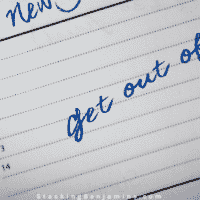 New
get out of
13
14
StackingBenjamins.com